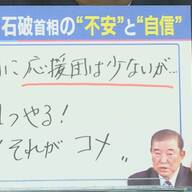 石破首相の“不安”と“自信”
に応援団は少ないが…
つやる！
それが コメ〃